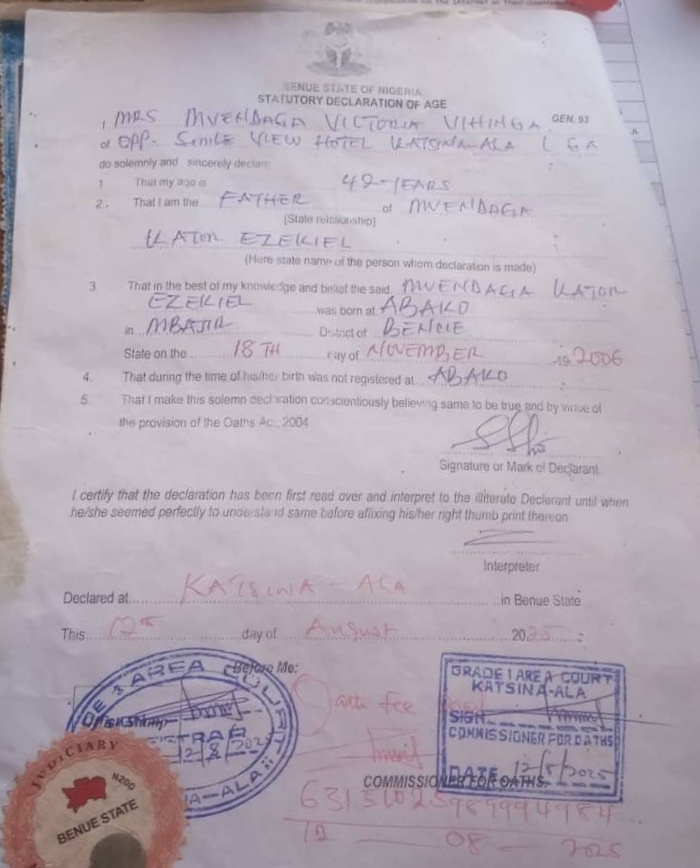 BENUE STATE OF NIGERIA
STATUTORY DECLARATION OF AGE
GEN. 93
I, MRS MVENDAGA VICTORIA VIHINGA
of OPP. SMILE VIEW HOTEL KATSINA-ALA LGA
do solemnly and sincerely declare
1 That my age is 42-YEARS
2. That I am the FATHER of MVENDAGA
(State relationship)
KATOR EZEKIEL
(Here state name of the person whom declaration is made)
3 That in the best of my knowledge and belief the said MVENDAGA KATOR
EZEKIEL was born at ABAKO
in District of BENUE
State on the 18TH day of NOVEMBER 19 2006
4. That during the time of his/her birth was not registered at ABAKO
5. That I make this solemn declaration conscientiously believing same to be true and by virtue of
the provision of the Oaths Ac., 2004
Signature or Mark of Declarant.
I certify that the declaration has been first read over and interpret to the illiterate Declarant until when
he/she seemed perfectly to understand same before affixing his/her right thumb print thereon
Interpreter
Declared at KATSINA-ALA in Benue State
This 12th day of August 2025
Before Me:
AREA COURT
Official stamp
12/8/2025
-ALA
Oath fee
GRADE I AREA COURT
KATSINA-ALA
SIGN
COMMISSIONER FOR OATHS
DATE 12/8/2025
COMMISSIONER FOR OATHS.
12 - 08 - 2025
JUDICIARY
N200
BENUE STATE